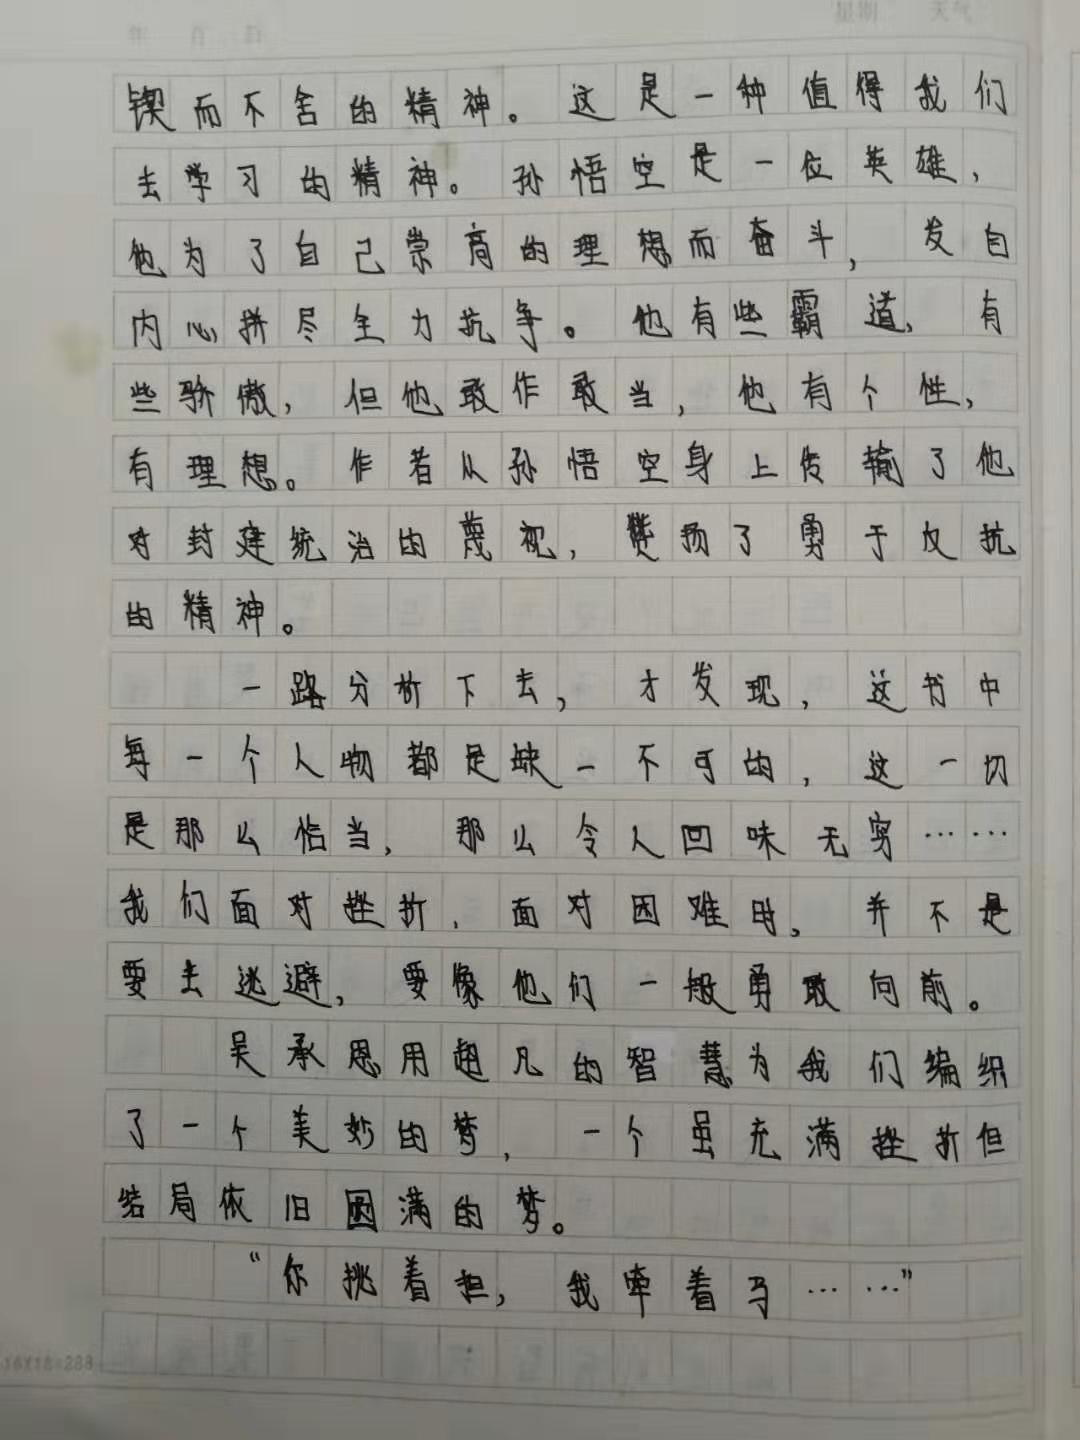 年 月 日 星期 天气
锲而不舍的精神。这是一种值得我们
去学习的精神。孙悟空是一位英雄,
他为了自己崇高的理想而奋斗,发自
内心拼尽全力抗争。他有些霸道,有
些骄傲,但他敢作敢当,他有个性,
有理想。作者从孙悟空身上传输了他
对封建统治的蔑视,赞扬了勇于反抗
的精神。
一路分析下去,才发现,这书中
每一个人物都是缺一不可的,这一切
是那么恰当,那么令人回味无穷……
我们面对挫折,面对困难时,并不是
要去逃避,要像他们一般勇敢向前。
吴承恩用超凡的智慧为我们编织
了一个美妙的梦,一个虽充满挫折但
结局依旧圆满的梦。
“你挑着担,我牵着马……”
16X18=288